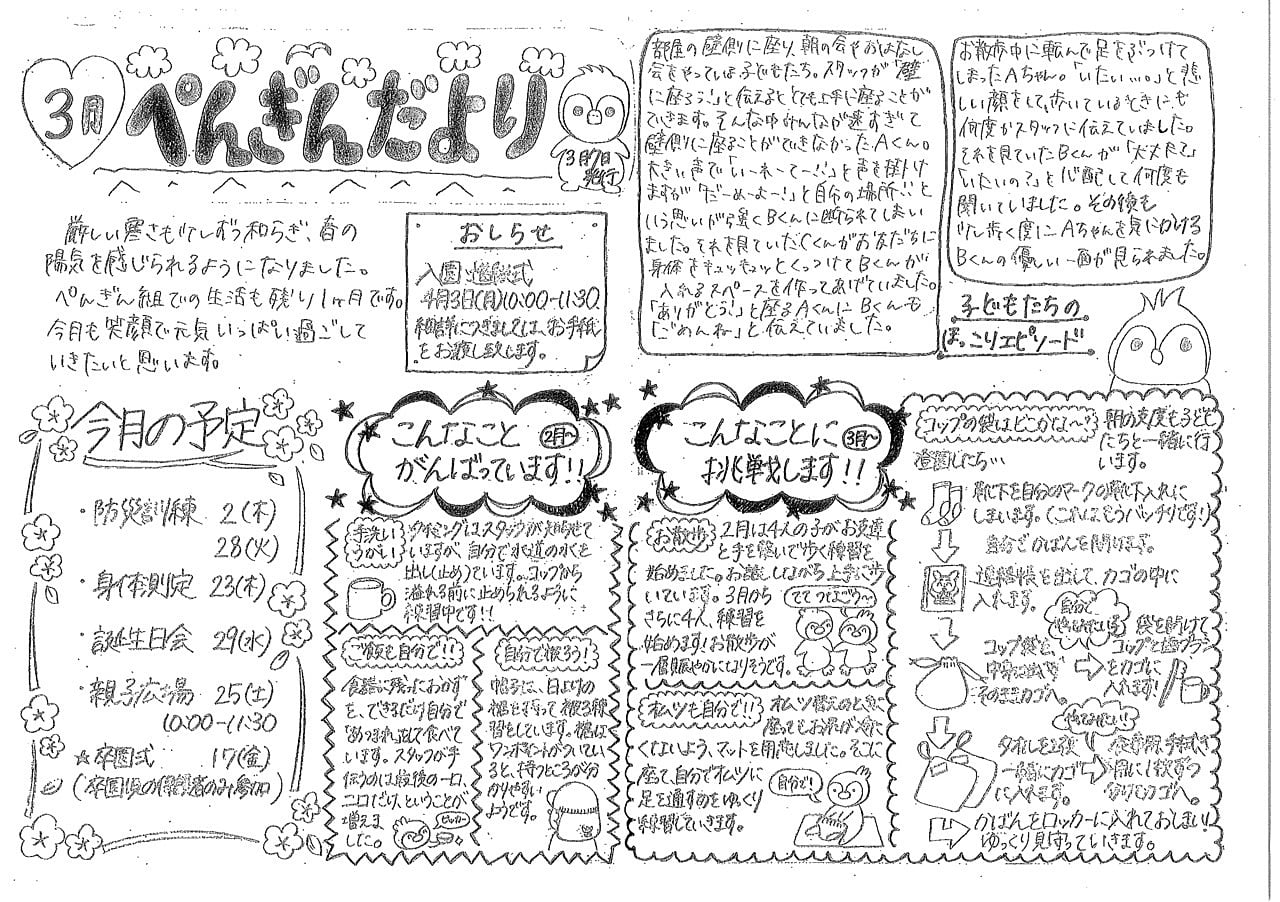 3月
ぺんぎんだより
3月7日
発行
厳しい寒さも少しずつ和らぎ、春の
陽気を感じられるようになりました。
ぺんぎん組での生活も残り1ヶ月です。
今月も笑顔で元気いっぱい過ごして
いきたいと思います。
おしらせ
入園・進級式
4月3日(月)10:00-11:30
詳細につきましては、お手紙
をお渡し致します。
部屋の壁側に座り、朝の会やおはなし
会をやっている子どもたち。スタッフが「壁
に座ろう!」と伝えるととても上手に座ることが
できます。そんな中みんなが速すぎて
壁側に座ることができなかったAくん。
大きい声で「いーれーてー!!」と声を掛け
ますが「だーめーよー!」と自分の場所!!と
いう思いが強くBくんに断られてしまい
ました。それを見ていたCくんがお友だちに
身体をキュッキュッとくっつけてBくんが
入れるスペースを作ってあげていました。
「ありがとう!」と座るAくんにBくんも
「ごめんね」と伝えていました。
お散歩中に転んで足をぶつけて
しまったAちゃん。「いたい…。」と悲
しい顔をして、歩いているときにも
何度かスタッフに伝えていました。
それを見ていたBくんが「大丈夫?」
「いたいの?」と心配して何度も
聞いていました。その後も
少し歩く度にAちゃんを気にかける
Bくんの優しい一面が見られました。
子どもたちの
ほっこりエピソード
今月の予定
・防災訓練 2(木)
28(火)
・身体測定 23(木)
・誕生日会 29(水)
・親子広場 25(土)
10:00-11:30
☆卒園式 17(金)
(卒園児の保護者のみ参加)
こんなこと 2月~
がんばっています!!
手洗い
うがい
タイミングはスタッフが知らせて
いますが、自分で水道の水を
出し(止め)ています。コップから
溢れる前に止められるように
練習中です!!
ご飯も自分で!!
食器に残ったおかず
を、できるだけ自分で
"あつまれ"して食べて
います。スタッフが手
伝うのは最後の一口、
二口だけ、ということが
増えま
した。
ピッカー
自分で被ろう!
帽子に、日よけの
裾を持って被る練
習をしています。裾に
ワンポイントがついてい
ると、持つところが分
かりやすい
ようです。
こんなことに 3月~
挑戦します!!
お散歩
2月は4人の子がお友達
と手を繋いで歩く練習を
始めました。お話ししながら上手に歩
いています。3月から
さらに4人、練習を
始めます!お散歩が
一層賑やかになりそうです。
ててつなごう~
オムツも自分で!!
オムツ替えのときに
座ってもお尻が冷た
くないよう、マットを用意しました。そこに
座て、自分でオムツに
足を通すのをゆっくり
練習していきます。
自分で!
コップの袋はどこかな~?
朝の支度も子ども
たちと一緒に行
います。
登園したら…
靴下を自分のマークの靴下入れに
しまいます。(これはもうバッチリです!)
自分でかばんを開けます。
連絡帳を出して、カゴの中に
入れます。
自分で
やってみたい
コップ袋を
そのままカゴへ。
袋を開けて
コップと歯ブラシ
をカゴに
入れます!
やってみたい!
タオルを2枚
一緒にカゴ
に入れます。
食事用、手拭き
用に1枚ずつ
分けてカゴへ。
かばんをロッカーに入れておしまい!
ゆっくり見守っていきます。